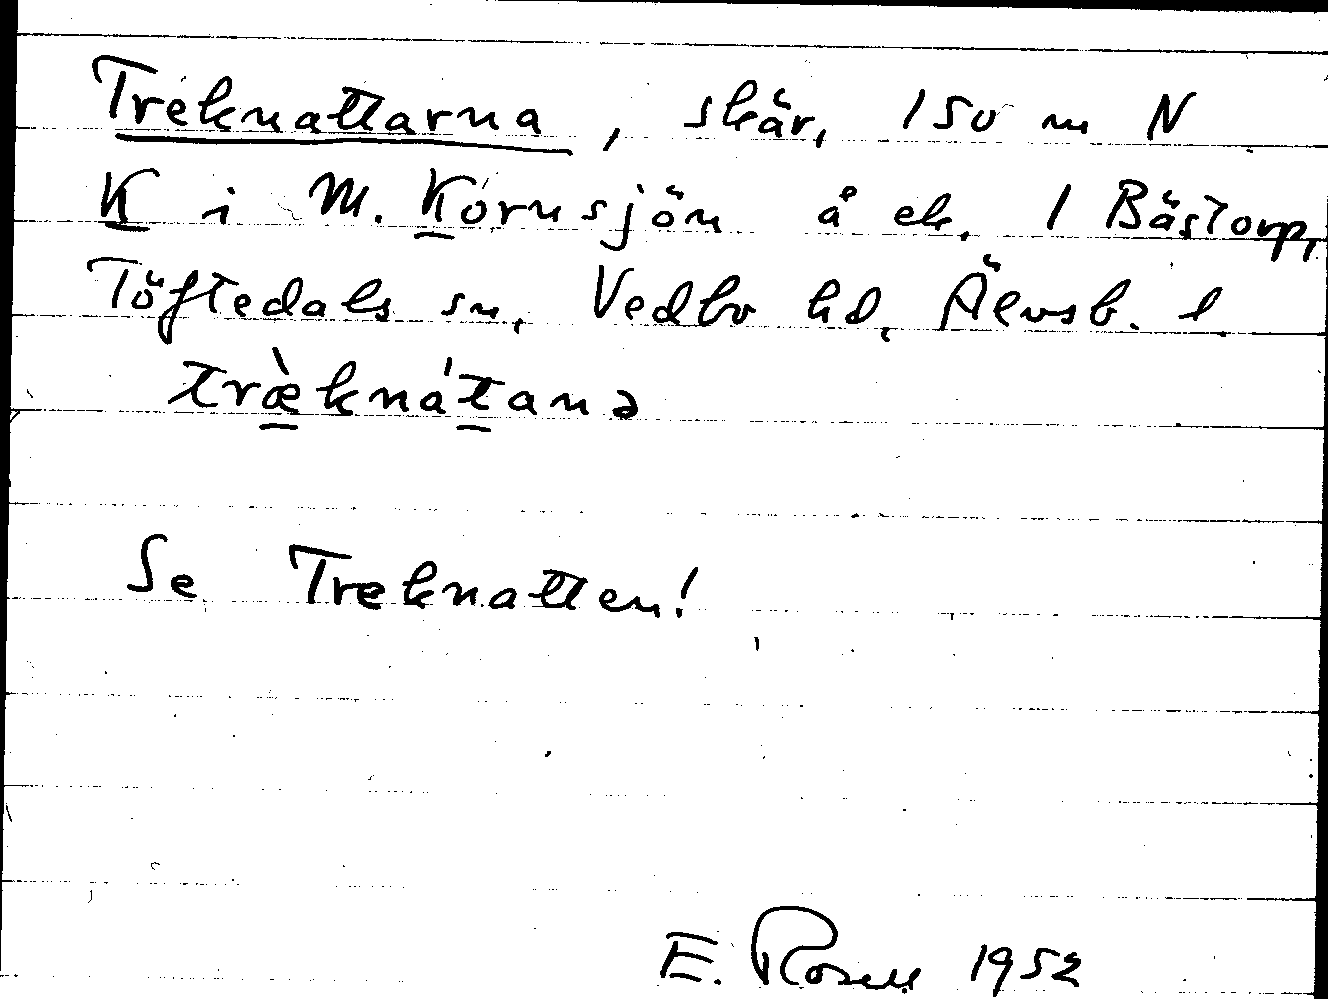 Treknattarna, skär, 150 m N
K i M. Kornsjön å ek. 1 Bästorp,
Töftedals sn, Vedbo hd, Älvsb. l.
træ̀kná̀tanə
Se Treknatten!
E. Rosell 1952